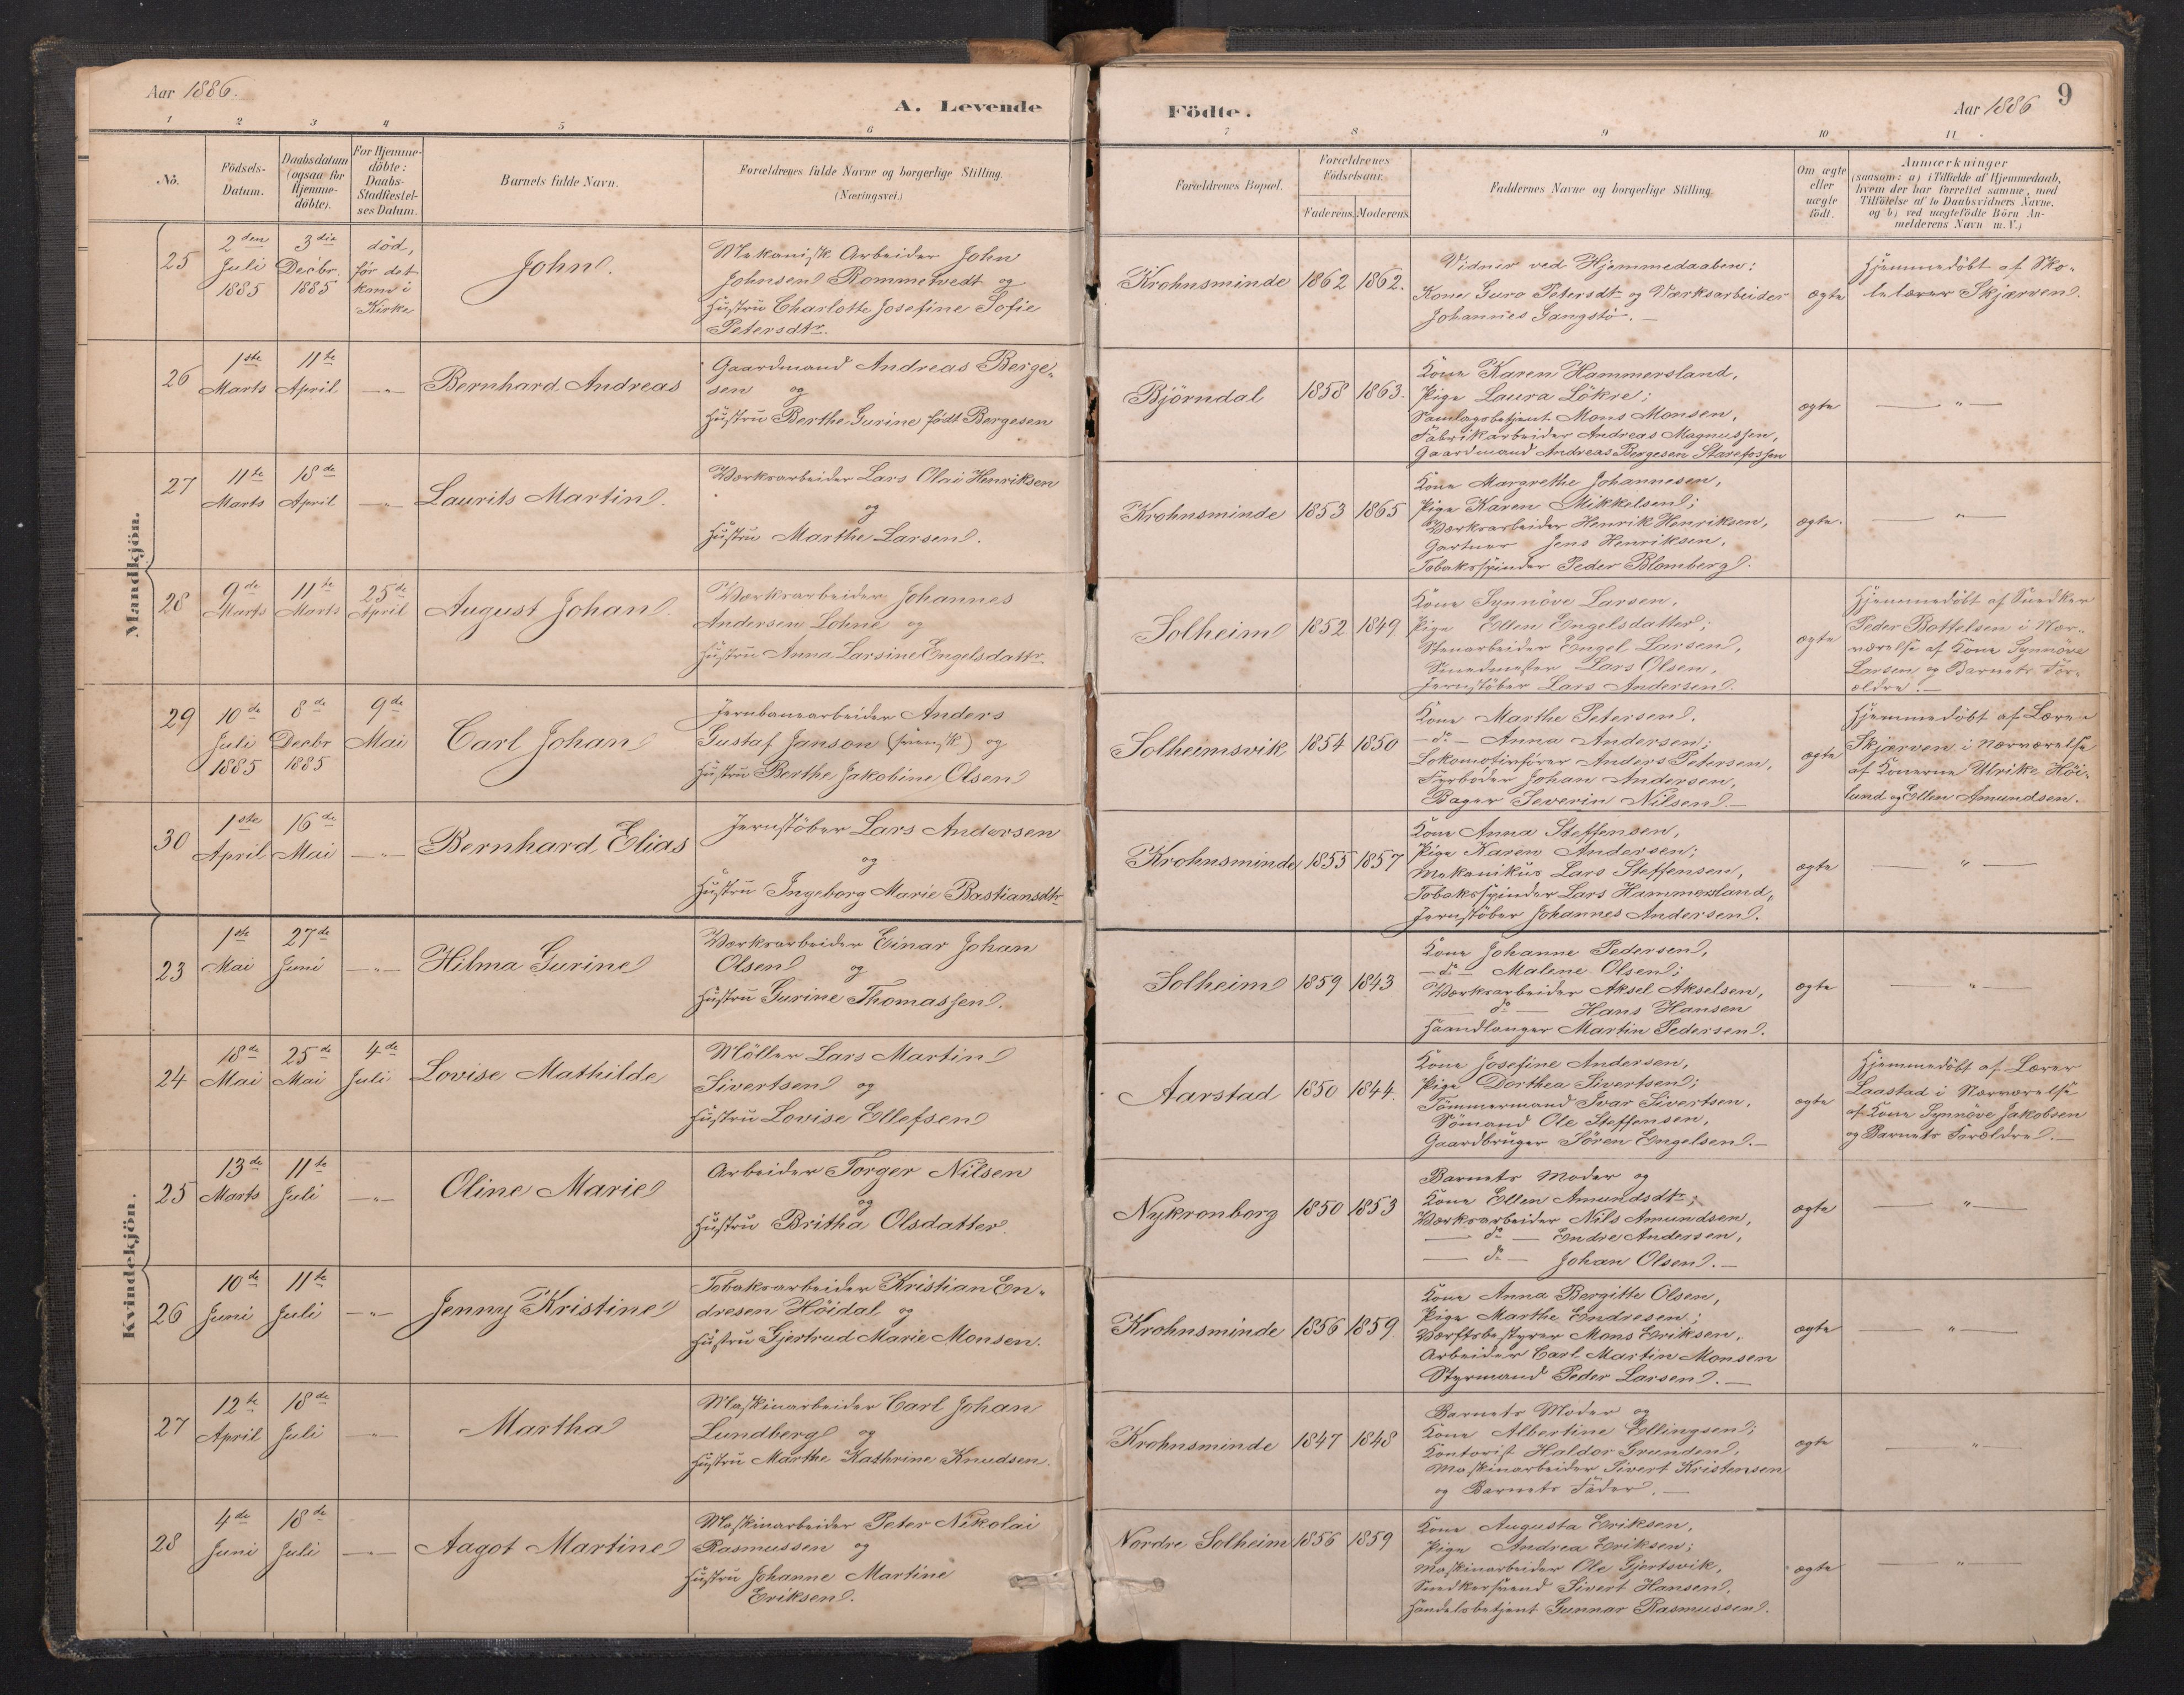 Aar 1886.
A. Levende
1 2 3 4 5 6
No.
Födsels-
Datum.
Daabsdatum
(ogsaa for
Hjemme-
döbte).
For Hjemme-
döbte:
Daabs-
Stadfæstel-
ses Datum.
Barnets fulde Navn.
Forældrenes fulde Navne og borgerlige Stilling.
(Næringsvei.)
Mandkjön.
25
2den
Juli
1885
3die
Decbr.
1885
död,
før det
kom i
Kirke
John.
Mekanisk Arbeider John
Johnsen Rommetvedt og
Hustru Charlotte Josefine Sofie
Petersdtr.
26
1ste
Marts
11te
April
— " —
Bernhard Andreas
Gaardmand Andreas Berge-
sen og
Hustru Berthe Gurine født Bergesen
27
11te
Marts
18de
April
— " —
Laurits Martin.
Værksarbeider Lars Olai Henriksen
og
Hustru Marthe Larsen.
28
9de
Marts
11te
Marts
25de
April
August Johan
Værksarbeider Johannes
Andersen Lohne og
Hustru Anna Larsine Engelsdattr.
29
10de
Juli
1885
8de
Decbr
1885
9de
Mai
Carl Johan
Jernbanearbeider Anders
Gustaf Janson (svensk) og
Hustru Berthe Jakobine Olsen
30
1ste
April
16de
Mai
— " —
Bernhard Elias
Jernstöber Lars Andersen
og
Hustru Ingeborg Marie Bastiansdtr
Kvindekjön.
23
1ste
Mai
27de
Juni
— " —
Hilma Gurine
Værksarbeider Einar Johan
Olsen og
Hustru Gurine Thomassen.
24
18de
Mai
25de
Mai
4de
Juli
Lovise Mathilde
Möller Lars Martin
Sivertsen og
Hustru Lovise Ellefsen
25
13de
Marts
11te
Juli
— " —
Oline Marie
Arbeider Torger Nilsen
og
Hustru Britha Olsdatter.
26
10de
Juni
11te
Juli
— " —
Jenny Kristine
Tobaksarbeider Kristian En-
dresen Höidal og
Hustru Gjertrud Marie Monsen.
27
12te
April
18de
Juli
— " —
Martha
Maskinarbeider Carl Johan
Lundberg og
Hustru Marthe Kathrine Knudsen.
28
4de
Juni
18de
Juli
— " —
Aagot Martine
Maskinarbeider Peter Nikolai
Rasmussen og
Hustru Johanne Martine
Eriksen.
Födte.
Aar 1886
9
7 8 9 10 11
Forældrenes Bopæl.
Forældrenes
Födselsaar.
Faderens. Moderens.
Faddernes Navne og borgerlige Stilling.
Om ægte
eller
uægte
födt.
Anmærkninger
(saasom: a) i Tilfælde af Hjemmedaab,
hvem der har forrettet samme, med
Tilföielse af to Daabsvidners Navne,
og b) ved uægtefödte Börn An-
melderens Navn m. V.)
Krohnsminde 1862 1862.
Vidner ved Hjemmedaaben:
Kone Guro Petersdtr og Værksarbeider
Johannes Gangstö. —
ægte
Hjemmedöbt af Sko-
lelærer Skjærven.
Björndal 1858 1863.
Kone Karen Hammersland,
Pige Laura Lökre;
Samlagsbetjent Mons Monsen,
Fabrikarbeider Andreas Magnussen,
Gaardmand Andreas Bergesen Starefossen
ægte
— " —
Krohnsminde 1853 1865
Kone Margrethe Johannesen,
Pige Karen Mikkelsen;
Værksarbeider Henrik Henriksen,
Gartner Jens Henriksen,
Tobaksspinder Peder Blomberg.
ægte.
— " —
Solheim 1852 1849
Kone Synnöve Larsen,
Pige Ellen Engelsdatter;
Stenarbeider Engel Larsen,
Smedmester Lars Olsen,
Jernstöber Lars Andersen.
ægte
Hjemmedöbt af Snedker
Peder Bottelsen i Nær-
værelse af Kone Synnöve
Larsen og Barnets For-
ældre. —
Solheimsvik 1854 1850
Kone Marthe Petersen.
— do — Anna Andersen;
Lokomotivförer Anders Petersen,
Fyrböder Johan Andersen,
Bager Severin Nilsen —
ægte
Hjemmedöbt af Lærer
Skjærven i Nærværelse
af Konerne Ulrike Höi-
lund og Ellen Amundsen.
Krohnsminde 1855 1857
Kone Anna Steffensen,
Pige Karen Andersen;
Mekanikus Lars Steffensen,
Tobaksspinder Lars Hammersland,
Jernstöber Johannes Andersen.
ægte
— " —
Solheim 1859 1843
Kone Johanne Pedersen,
— do — Malene Olsen;
Værksarbeider Aksel Akselsen,
— do — Hans Hansen
Haandlanger Martin Pedersen.
ægte
— " —
Aarstad 1850 1844.
Kone Josefine Andersen,
Pige Dorthea Sivertsen;
Tömmermand Ivar Sivertsen,
Sömand Ole Steffensen,
Gaardbruger Sören Engelsen. —
ægte
Hjemmedöbt af Lærer
Laastad i Nærværelse
af Kone Synnöve Jakobsen
og Barnets Forældre. —
Nykronborg 1850 1853
Barnets Moder og
Kone Ellen Amundsdtr;
Værksarbeider Nils Amundsen,
— do — Endre Andersen,
— do — Johan Olsen. —
ægte
— " —
Krohnsminde 1856 1859
Kone Anna Bergitte Olsen,
Pige Marthe Endresen;
Værftsbestyrer Mons Eriksen,
Arbeider Carl Martin Monsen
Styrmand Peder Larsen. —
ægte
— " —
Krohnsminde 1847 1848
Barnets Moder og
Kone Albertine Ellingsen;
Kontorist Haldor Grunden,
Maskinarbeider Sivert Kristensen
og Barnets Fader. —
ægte
— " —
Nordre Solheim 1856 1859
Kone Augusta Eriksen,
Pige Andrea Eriksen;
Maskinarbeider Ole Gjertsvik,
Snedkersvend Sivert Hansen,
Handelsbetjent Gunnar Rasmussen.
ægte
— " —